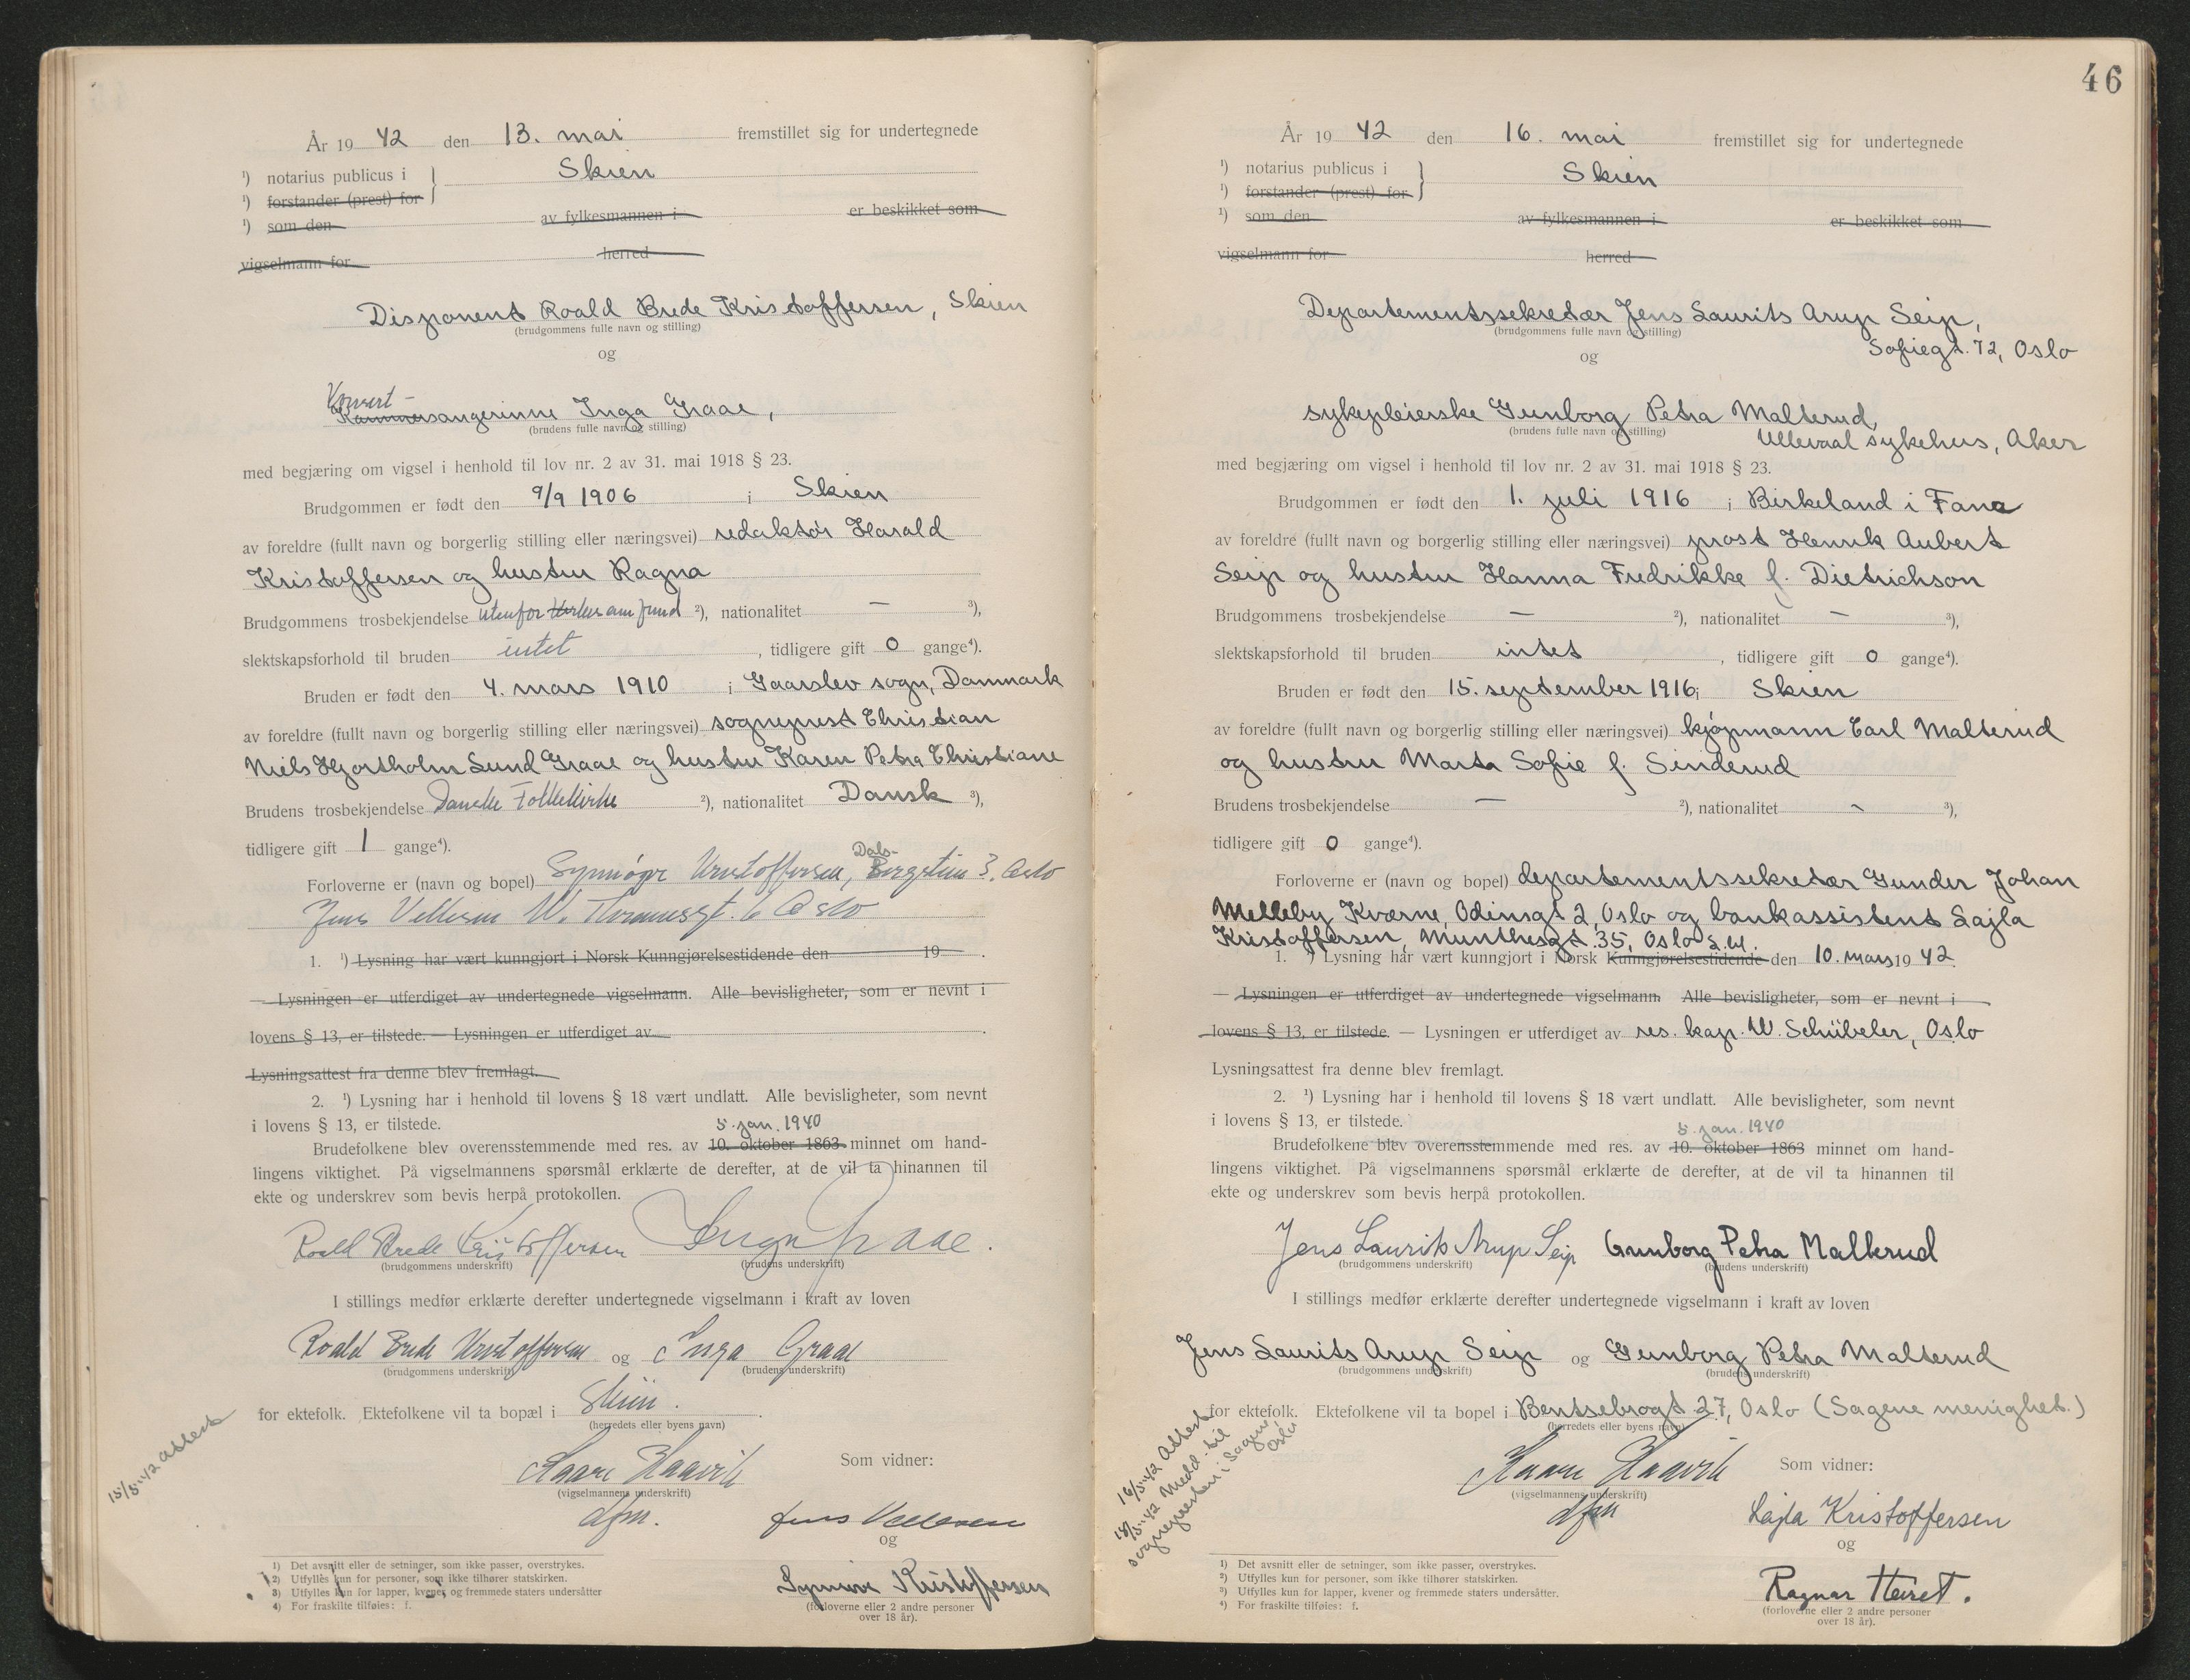 År 19 42 den 13. mai fremstillet sig for undertegnede
¹) notarius publicus i } Skien
¹) forstander (prest) for
¹) som den av fylkesmannen i er beskikket som
vigselmann for herred
Disponent Roald Brede Kristoffersen, Skien
(brudgommens fulle navn og stilling)
og
Konsert-
Kammersangerinne Inga Graae,
(brudens fulle navn og stilling)
med begjæring om vigsel i henhold til lov nr. 2 av 31. mai 1918 § 23.
Brudgommen er født den 9/9 1906 i Skien
av foreldre (fullt navn og borgerlig stilling eller næringsvei) redaktør Harald
Kristoffersen og hustru Ragna
Brudgommens trosbekjendelse utenfor ²), nationalitet — ³),
slektskapsforhold til bruden intet, tidligere gift 0 gange⁴).
Bruden er født den 4. mars 1910 i Gaarslev sogn, Danmark
av foreldre (fullt navn og borgerlig stilling eller næringsvei) sogneprest Christian
Niels Hjortholm Lund Graae og hustru Karen Petra Christiane
Brudens trosbekjendelse Danske Folkekirke ²), nationalitet Dansk ³),
tidligere gift 1 gange⁴).
Dals-
Forloverne er (navn og bopel) Synnøve Kristoffersen, Bergstien 3, Oslo
Jens Vellesen W. Thranesgt. 6 Oslo
1. ¹) Lysning har vært kunngjort i Norsk Kunngjørelsestidende den 19 .
— Lysningen er utferdiget av undertegnede vigselmann. Alle bevisligheter, som er nevnt i
lovens § 13, er tilstede. — Lysningen er utferdiget av .
Lysningsattest fra denne blev fremlagt.
2. ¹) Lysning har i henhold til lovens § 18 vært undlatt. Alle bevisligheter, som nevnt
i lovens § 13, er tilstede.
5. jan. 1940
Brudefolkene blev overensstemmende med res. av 10. oktober 1863 minnet om hand-
lingens viktighet. På vigselmannens spørsmål erklærte de derefter, at de vil ta hinannen til
ekte og underskrev som bevis herpå protokollen.
Roald Brede Kristoffersen Inga Graae.
(brudgommens underskrift) (brudens underskrift)
I stillings medfør erklærte derefter undertegnede vigselmann i kraft av loven
Roald Brede Kristoffersen og Inga Graae
(brudgommens underskrift) (brudens underskrift)
for ektefolk. Ektefolkene vil ta bopæl i Skien.
(herredets eller byens navn)
15/5-42 Attest
Kaare Haavik Som vidner:
(vigselmannens underskrift)
dfm. Jens Vellesen
og
Synnøve Kristoffersen
(forloverne eller 2 andre personer
over 18 år).
1) Det avsnitt eller de setninger, som ikke passer, overstrykes.
2) Utfylles kun for personer, som ikke tilhører statskirken.
3) Utfylles kun for lapper, kvener og fremmede staters undersåtter
4) For fraskilte tilføies: f.
46
År 19 42 den 16. mai fremstillet sig for undertegnede
¹) notarius publicus i } Skien
¹) forstander (prest) for
¹) som den av fylkesmannen i er beskikket som
vigselmann for herred
Departementssekretær Jens Laurits Arup Seip,
(brudgommens fulle navn og stilling)
Sofiegt. 72, Oslo
og
sykepleierske Gunborg Petra Malterud,
(brudens fulle navn og stilling)
Ullevaal sykehus, Aker
med begjæring om vigsel i henhold til lov nr. 2 av 31. mai 1918 § 23.
Brudgommen er født den 1. juli 1916 i Birkeland i Fana
av foreldre (fullt navn og borgerlig stilling eller næringsvei) prost Henrik Aubert
Seip og hustru Hanna Fredrikke f. Dietrichson
Brudgommens trosbekjendelse — ²), nationalitet — ³),
slektskapsforhold til bruden intet, tidligere gift 0 gange⁴).
Bruden er født den 15. september 1916 i Skien
av foreldre (fullt navn og borgerlig stilling eller næringsvei) kjøpmann Carl Malterud
og hustru Marta Sofie f. Sinderud
Brudens trosbekjendelse — ²), nationalitet - ³),
tidligere gift 0 gange⁴).
Forloverne er (navn og bopel) departementssekretær Gunder Johan
Melleby Kværne, Odinsgt 2, Oslo og bankassistent Lajla
Kristoffersen, Munthesgt. 35, Oslo
1. ¹) Lysning har vært kunngjort i Norsk Kunngjørelsestidende den 10. mars 19 42.
— Lysningen er utferdiget av undertegnede vigselmann. Alle bevisligheter, som er nevnt i
lovens § 13, er tilstede. — Lysningen er utferdiget av res. kap. W. Schübeler, Oslo
Lysningsattest fra denne blev fremlagt.
2. ¹) Lysning har i henhold til lovens § 18 vært undlatt. Alle bevisligheter, som nevnt
i lovens § 13, er tilstede.
5. jan. 1940
Brudefolkene blev overensstemmende med res. av 10. oktober 1863 minnet om hand-
lingens viktighet. På vigselmannens spørsmål erklærte de derefter, at de vil ta hinannen til
ekte og underskrev som bevis herpå protokollen.
Jens Laurits Arup Seip Gunborg Petra Malterud
(brudgommens underskrift) (brudens underskrift)
I stillings medfør erklærte derefter undertegnede vigselmann i kraft av loven
Jens Laurits Arup Seip og Gunborg Petra Malterud
(brudgommens underskrift) (brudens underskrift)
for ektefolk. Ektefolkene vil ta bopel i Bentsebrogt. 27, Oslo (Sagene menighet.)
(herredets eller byens navn)
16/5-42 Attest
18/5-42 Medd. til
sognepresten i Sagene
Oslo
Kaare Haavik Som vidner:
(vigselmannens underskrift)
dfm Lajla Kristoffersen
og
Ragnar Heiret.
(forloverne eller 2 andre personer
over 18 år).
¹) Det avsnitt eller de setninger, som ikke passer, overstrykes.
²) Utfylles kun for personer, som ikke tilhører statskirken.
³) Utfylles kun for lapper, kvener og fremmede staters undersåtter.
⁴) For fraskilte tilføies: f.